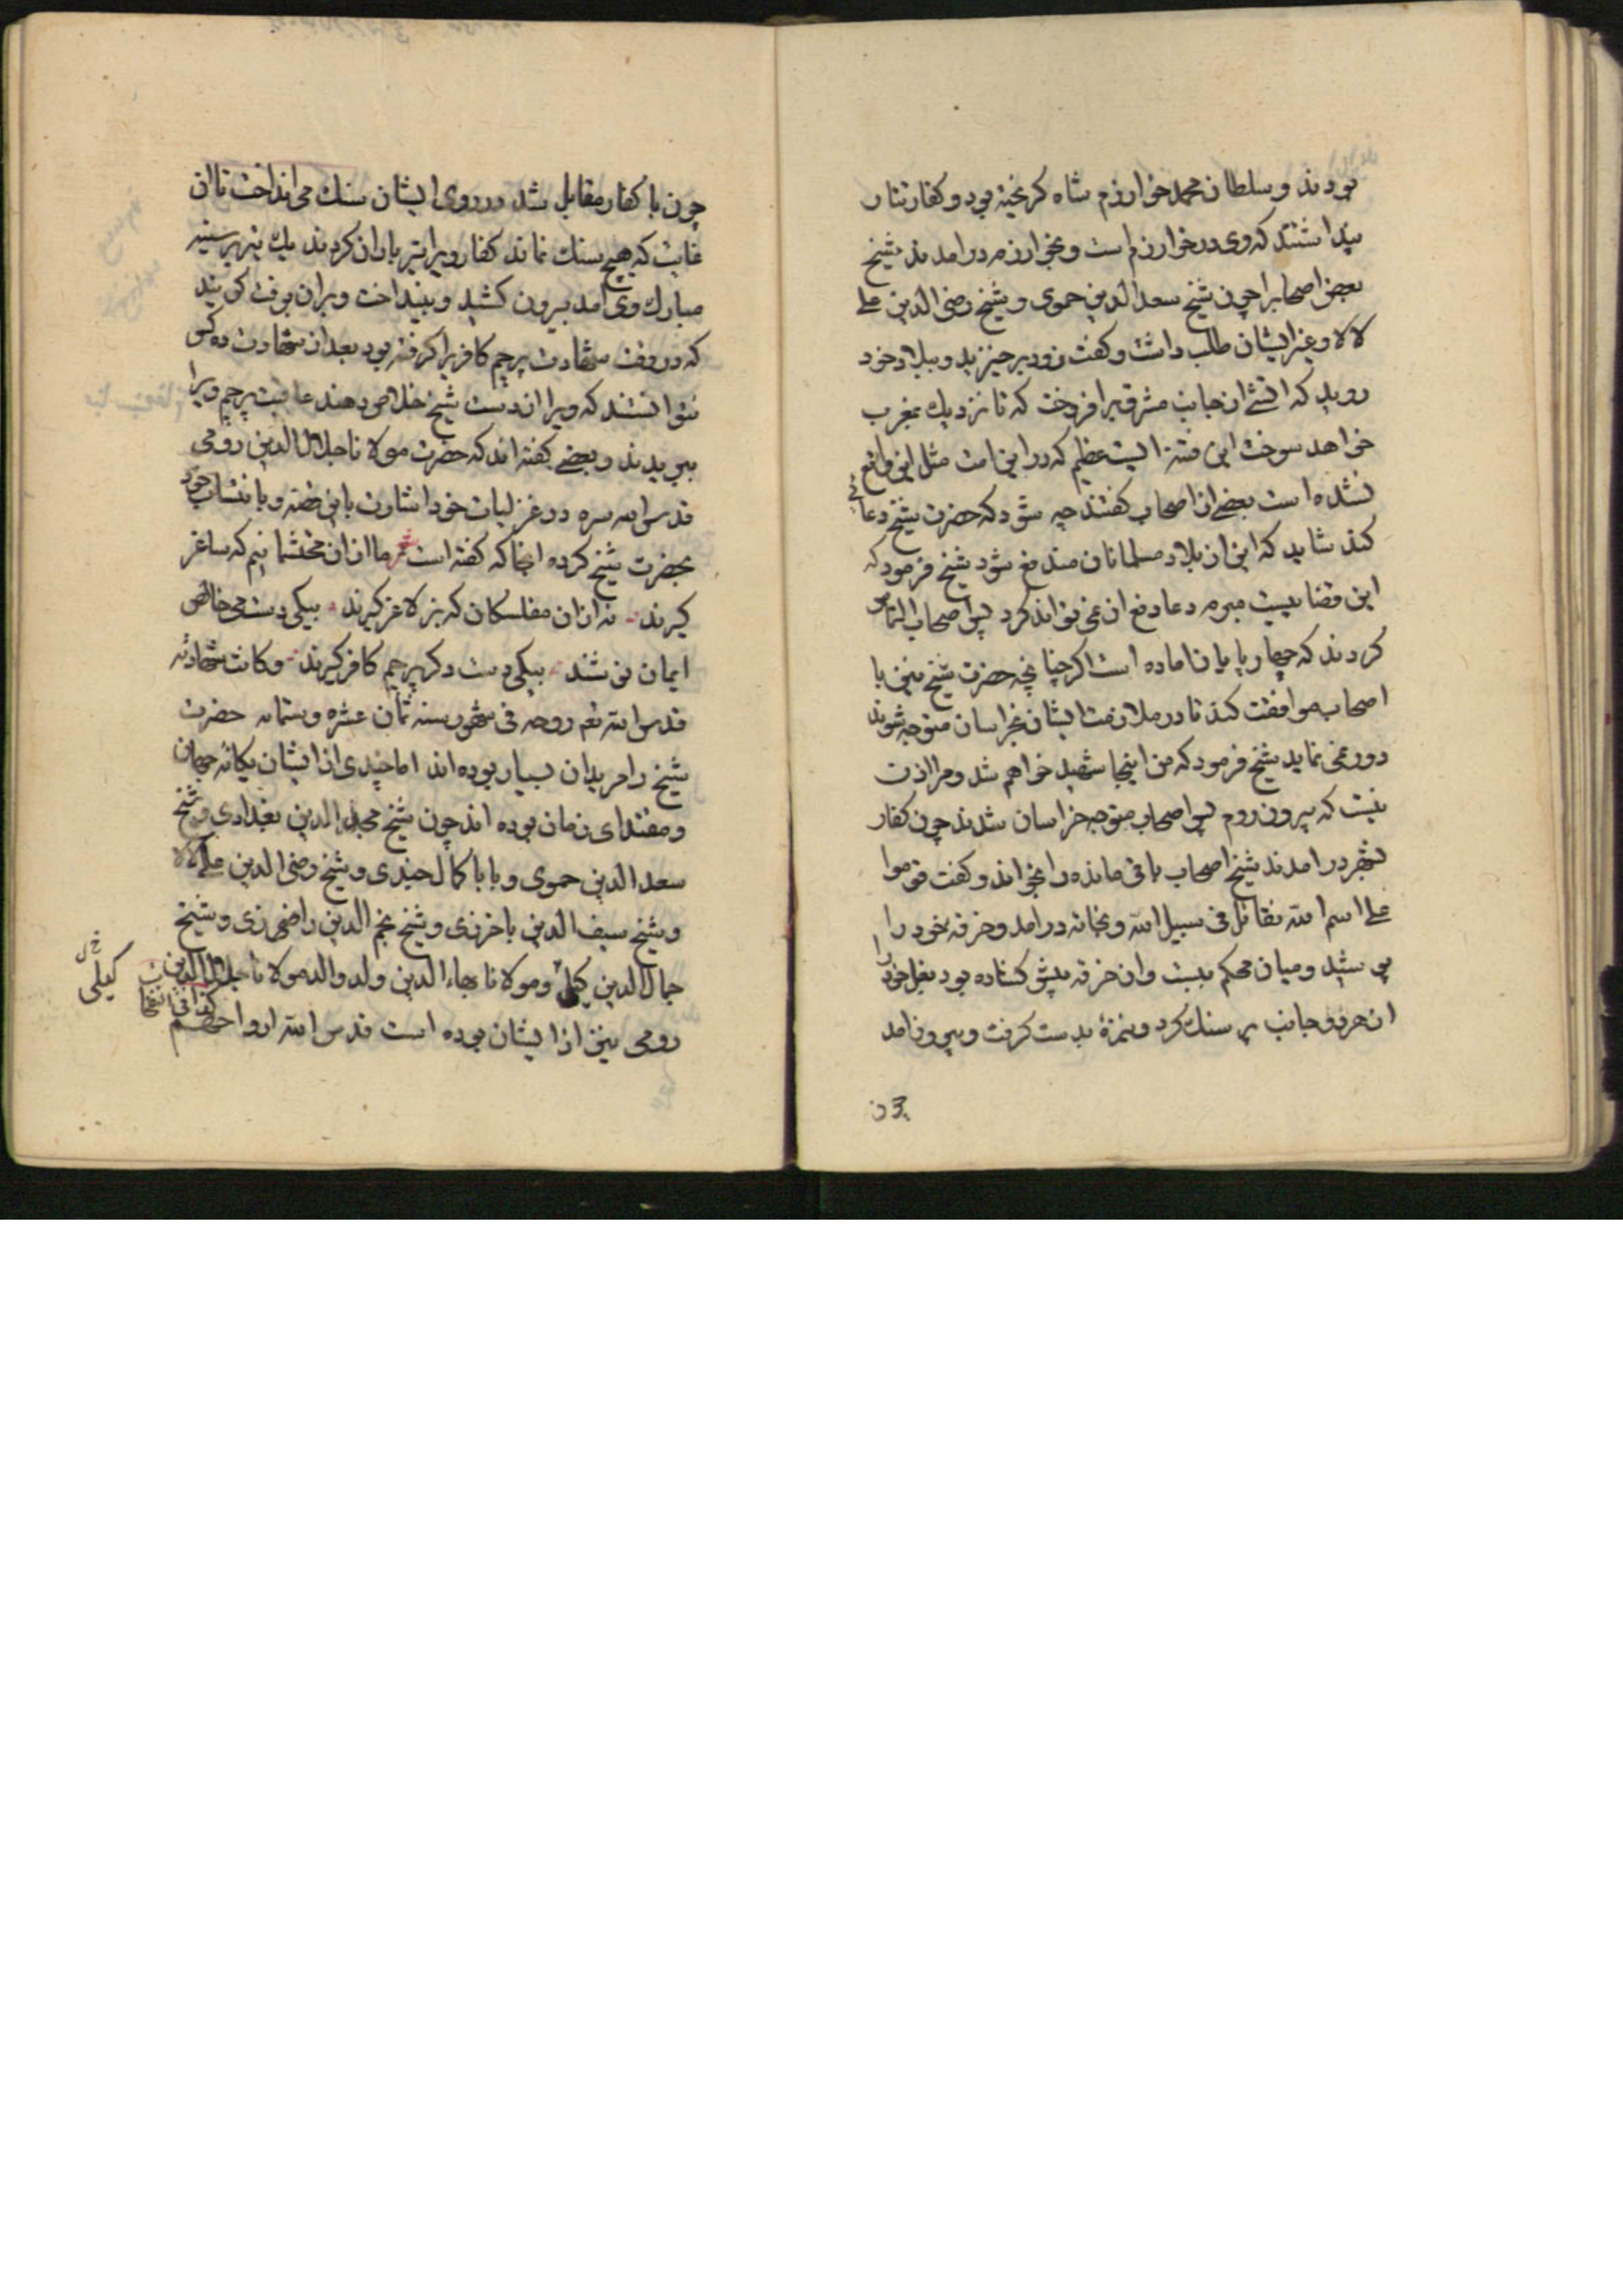 بودند و سلطان محمد خوارزم شاه کریخته بود و کفار تتار
پنداشتند که وی در خوارزم است و بخوارزم درامدند شیخ
بعض اصحابرا چون شیخ سعد الدین حموی و شیخ رضی الدین علی
لالا وغیر ایشان طلب داشت و کفت زود برخیزید و ببلاد خود
روید که اتشی از جانب مشرق برافروخت که تا نزدیك بمغرب
خواهد سوخت این فتنه ایست عظیم که در این امت مثل این واقع
نشده است بعضی از اصحاب کفتند چه شود که حضرت شیخ دعائی
کند شاید که این از بلاد مسلمانان مندفع شود شیخ فرمود که
این قضاییست مبرم دعا دفع ان نمی تواند کرد پس اصحاب التماس
کردند که چهارپایان اماده است اکر چنانچه حضرت شیخ نیز با
اصحاب موافقت کند تا در ملازمت ایشان بخراسان متوجه شوند
دور نمی نماید شیخ فرمود که من اینجا شهید خواهم شد و مرا اذن
نیست که بیرون روم پس اصحاب متوجه خراسان شدند چون کفار
بشهر درامدند شیخ اصحاب باقی مانده را بخواند و کفت قوموا
علی اسم الله نقاتل فی سبیل الله و بخانه درامد و خرقه خود را
پوشید و میان محکم ببست وان خرقه پیش کشاده بود بغل خود را
از هر دو جانب پر سنك کرد و نیزۀ بدست کرفت و بیرون امد
چون
چون با کفار مقابل شد در روی ایشان سنك می انداخت تا ان
غایت که هیچ سنك نماند کفار ویرا تیر باران کردند یك تیر بر سینه
مبارك وی امد بیرون کشید و بینداخت و بران برفت کویند
که در وقت شهادت پرچم کافریرا کرفته بود بعد از شهادت ده کس
نتوانستند که ویرا از دست شیخ خلاص دهند عاقبت پرچم ویرا
ببریدند و بعضی کفته اند که حضرت مولانا جلال الدین رومی
قدس الله سره در غزلیات خود اشارت باین قصه و بانتساب خود
بحضرت شیخ کرده انجا که کفته است شعر ما از ان محتشمانیم که ساغر
کیرند نه از ان مفلسکان که بز لاغر کیرند بیکی دست می خالص
ایمان نوشند بیکی دست دکر پرچم کافر کیرند و کانت شهادته
قدس الله تع روحه فی شهور سنه ثمان عشره وستمایه حضرت
شیخ را مریدان بسیار بوده اند اما چندی از ایشان یکانه جهان
و مقتدای زمان بوده اند چون شیخ مجد الدین بغدادی و شیخ
سعد الدین حموی و بابا کمال جندی و شیخ رضی الدین علی لالا
و شیخ سیف الدین باخرزی و شیخ نجم الدین رازی و شیخ
جمال الدین کیلی و مولانا بهاء الدین ولد والد مولانا جلال الدین
رومی نیز از ایشان بوده است قدس الله ارواحهم
کیلی